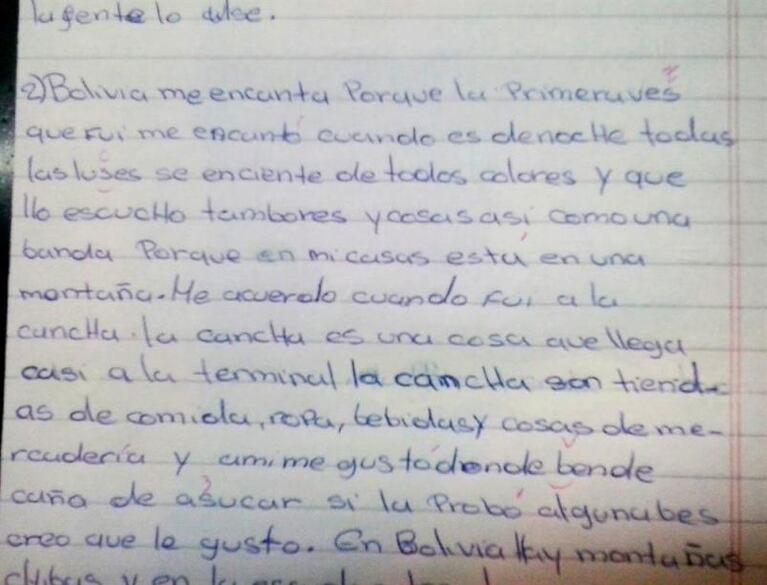 la gente lo dulce.
2) Bolivia me encanta Porque la Primera ves
que fui me encantó cuando es de nocHe todas
las luses se enciente de todos colores y que
llo escucHo tambores y cosas asi como una
banda Porque en mi casas está en una
montaña. Me acuerdo cuando fui a la
cancHa. la cancHa es una cosa que llega
casi a la terminal la cancHa son tiend-
as de comida, ropa, bebidas y cosas de me-
rcadería y a mi me gusta donde bende
caña de asucar si la Probó alguna bes
creo que le gusto. En Bolivia Hay montañas
y en